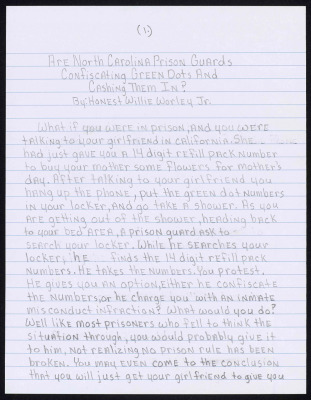 (1.)
Are North Carolina Prison Guards
Confiscating Green Dots And
Cashing Them In?
By: Honest Willie Worley Jr.
What if you were in prison, and you were
talking to your girlfriend in California. She
had just gave you a 14 digit refill pack number
to buy your mother some flowers for mother's
day. After talking to your girlfriend you
hang up the phone, put the green dot numbers
in your locker, and go take a shower. As you
are getting out of the shower, heading back
to your bed area, a prison guard ask to
search your locker. While he searches your
locker, he finds the 14 digit refill pack
numbers. He takes the numbers. You protest.
He gives you an option, either he confiscate
the numbers, or he charge you with an inmate
misconduct infraction? What would you do?
Well like most prisoners who fell to think the
situation through, you would probably give it
to him, not realizing no prison rule has been
broken. You may even come to the conclusion
that you will just get your girlfriend to give you